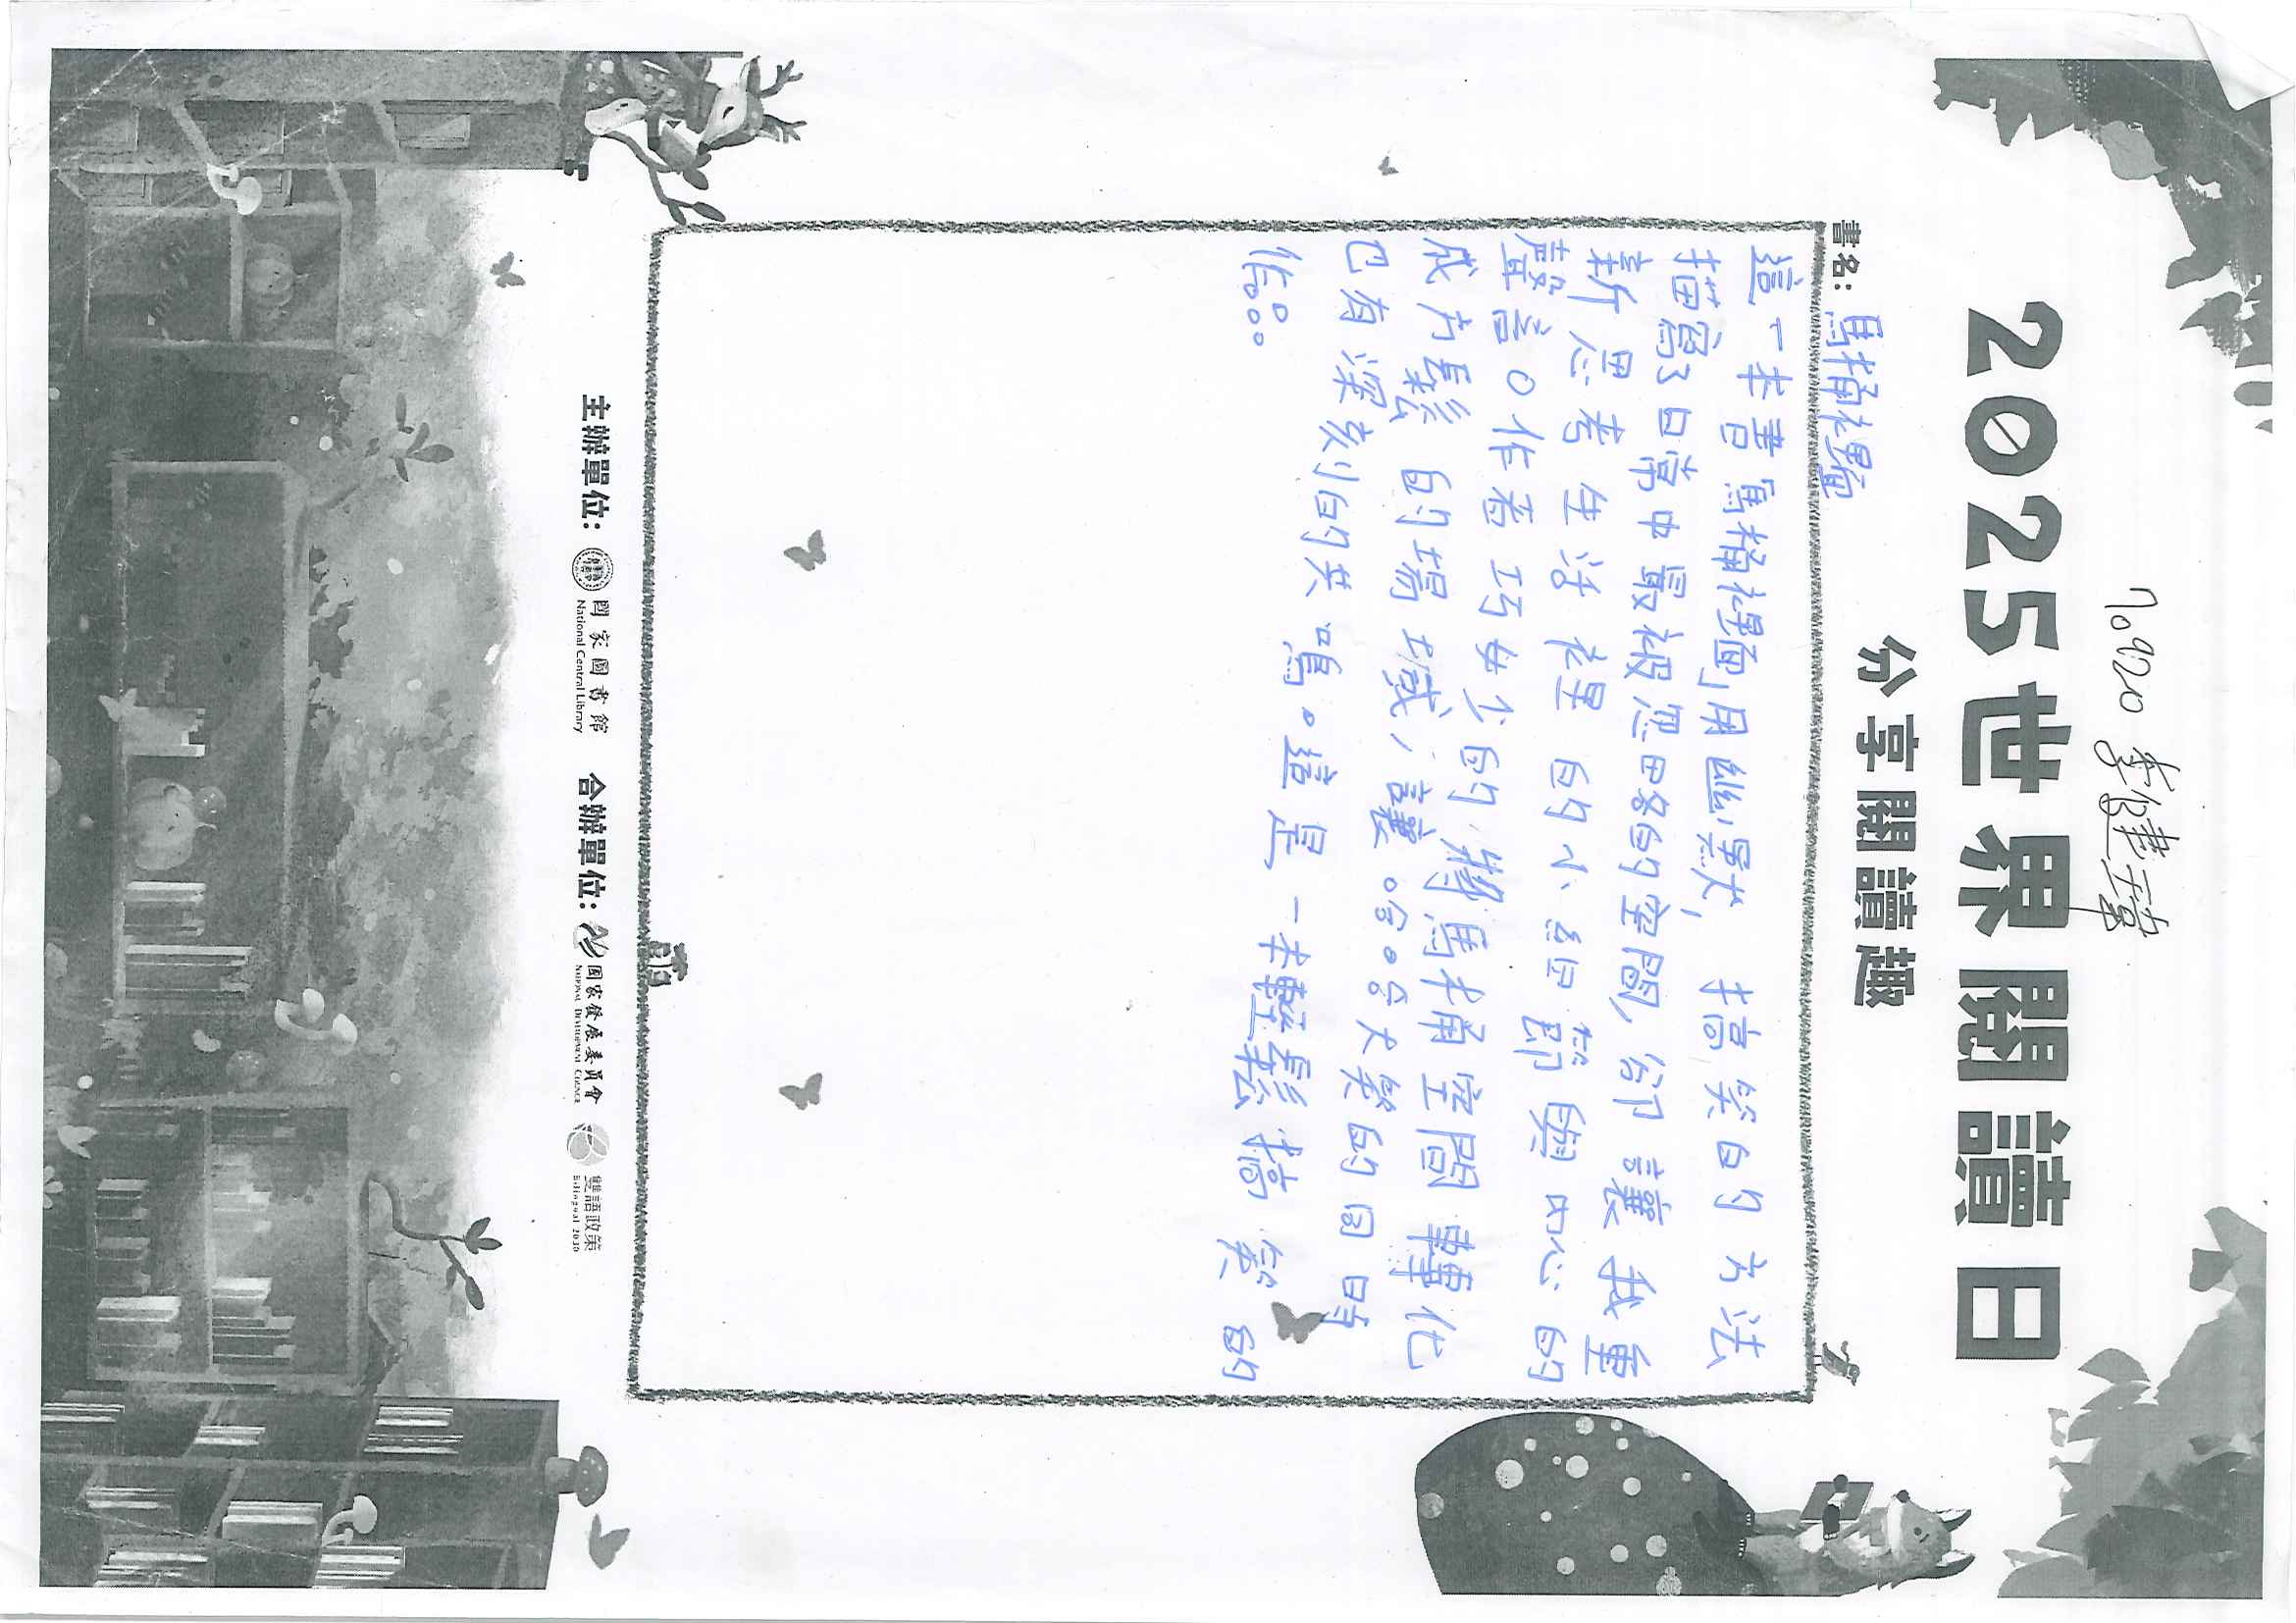 70920 李健瑋
2025世界閱讀日
分享閱讀趣
書名: 馬桶裡面
這一本書「馬桶裡面」用幽默,搞笑的方法
描寫了日常中最被忽略的空間,部讓我重
新思考生活裡的小細節與內心的
聲音。作者巧妙的將馬桶空間轉化
成為輕鬆的場域,讓哈哈大笑的同時
已有深刻的共鳴。這是一本輕鬆搞笑的
作品。。
主辦單位: 國家圖書館 National Central Library 合辦單位: 國家發展委員會 National Development Council 雙語政策 Bilingual 2030